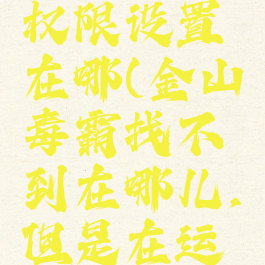 权限设置
在哪(金山
毒霸找不
到在哪儿,
但是在运